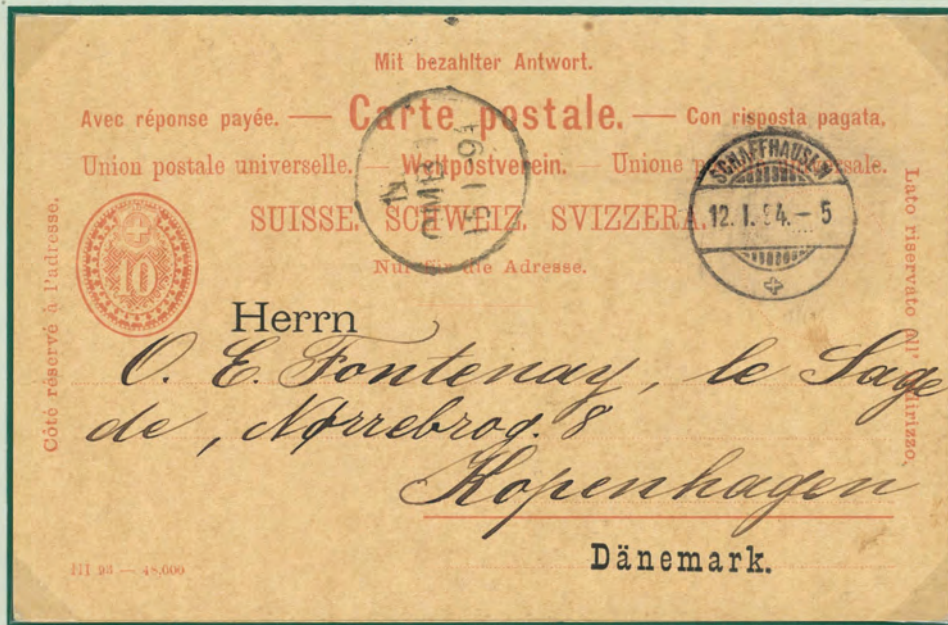 Mit bezahlter Antwort.
Avec réponse payée. — Carte postale. — Con risposta pagata.
Union postale universelle. — Weltpostverein. — Unione postale universale.
SUISSE. SCHWEIZ. SVIZZERA.
Nur für die Adresse.
Côté réservé à l'adresse.
10
15 1 94
SCHAFFHAUSEN
12. I. 94. – 5
Lato riservato all' indirizzo.
Herrn
O. E. Fontenay, le Sage
de, Nørrebrog. 8
Kopenhagen
Dänemark.
III 93 — 48.000